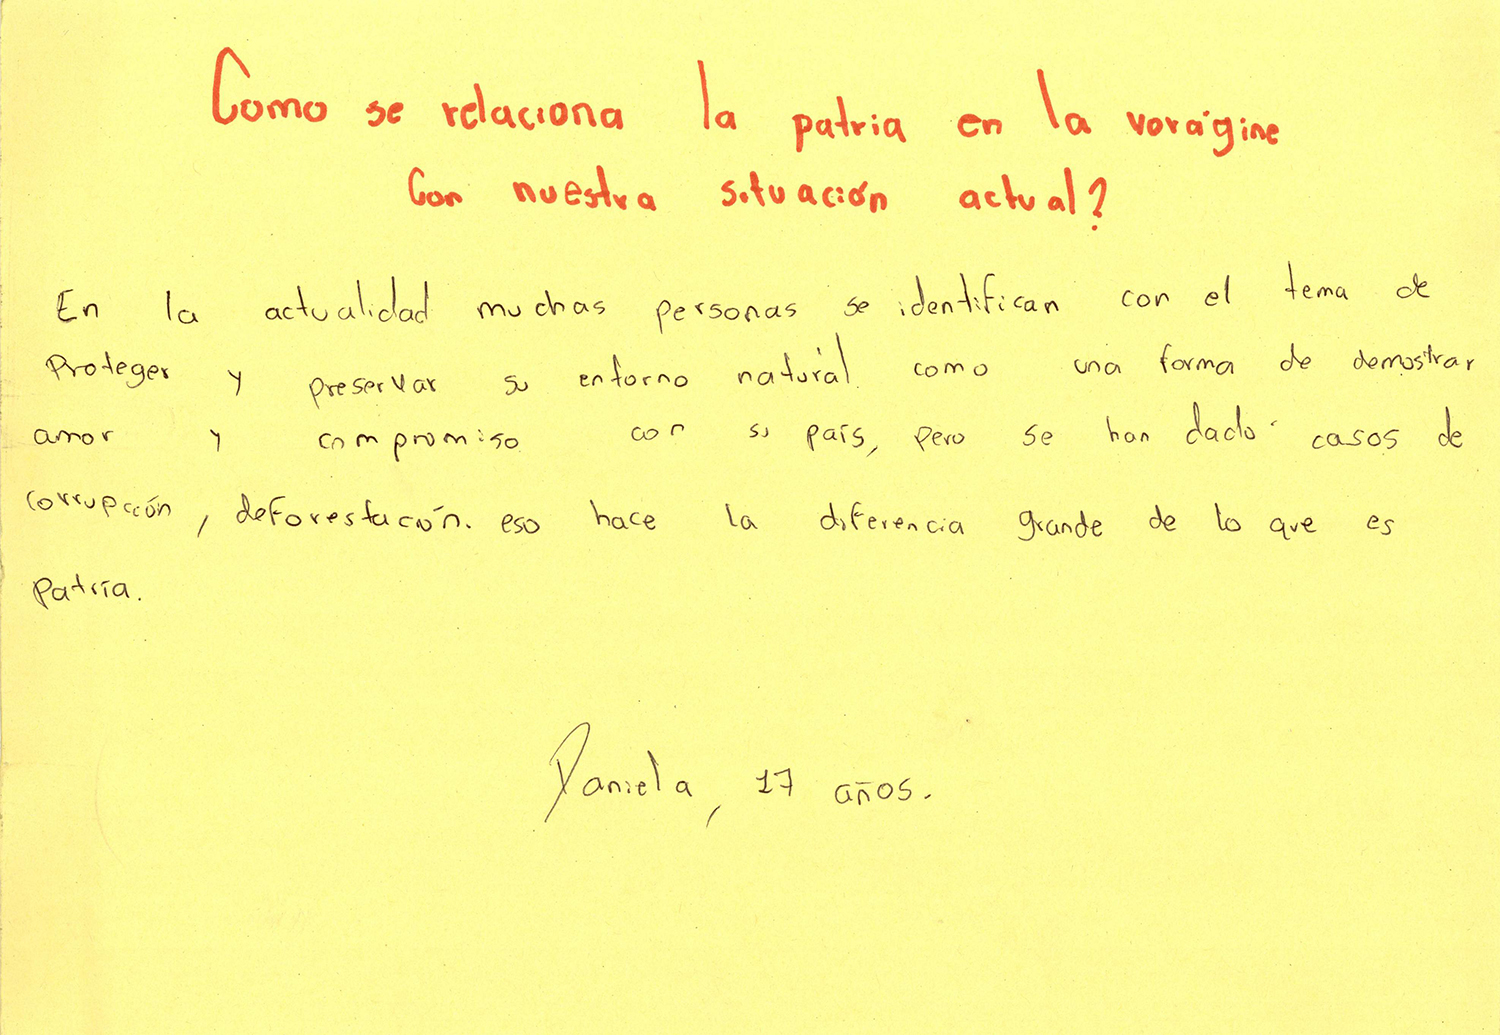 Como se relaciona la patria en la vorágine
Con nuestra situación actual?
En la actualidad muchas personas se identifican con el tema de
Proteger y preservar su entorno natural como una forma de demostrar
amor y compromiso con su país, pero se han dado casos de
corrupción, deforestación. eso hace la diferencia grande de lo que es
patria.
Daniela, 17 años.